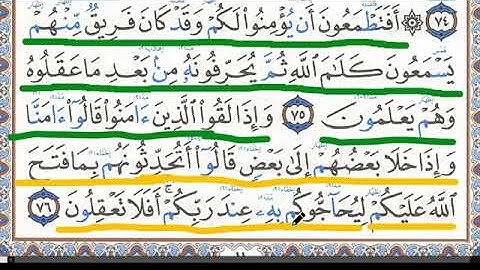 ٧٤ ۞ أَفَتَطْمَعُونَ أَن يُؤْمِنُوا۟ لَكُمْ وَقَدْ كَانَ فَرِيقٌ مِّنْهُمْ
يَسْمَعُونَ كَلَٰمَ ٱللَّهِ ثُمَّ يُحَرِّفُونَهُۥ مِنۢ بَعْدِ مَا عَقَلُوهُ
وَهُمْ يَعْلَمُونَ ٧٥ وَإِذَا لَقُوا۟ ٱلَّذِينَ ءَامَنُوا۟ قَالُوٓا۟ ءَامَنَّا
وَإِذَا خَلَا بَعْضُهُمْ إِلَىٰ بَعْضٍ قَالُوٓا۟ أَتُحَدِّثُونَهُم بِمَا فَتَحَ
ٱللَّهُ عَلَيْكُمْ لِيُحَآجُّوكُم بِهِۦ عِندَ رَبِّكُمْ ۚ أَفَلَا تَعْقِلُونَ ٧٦